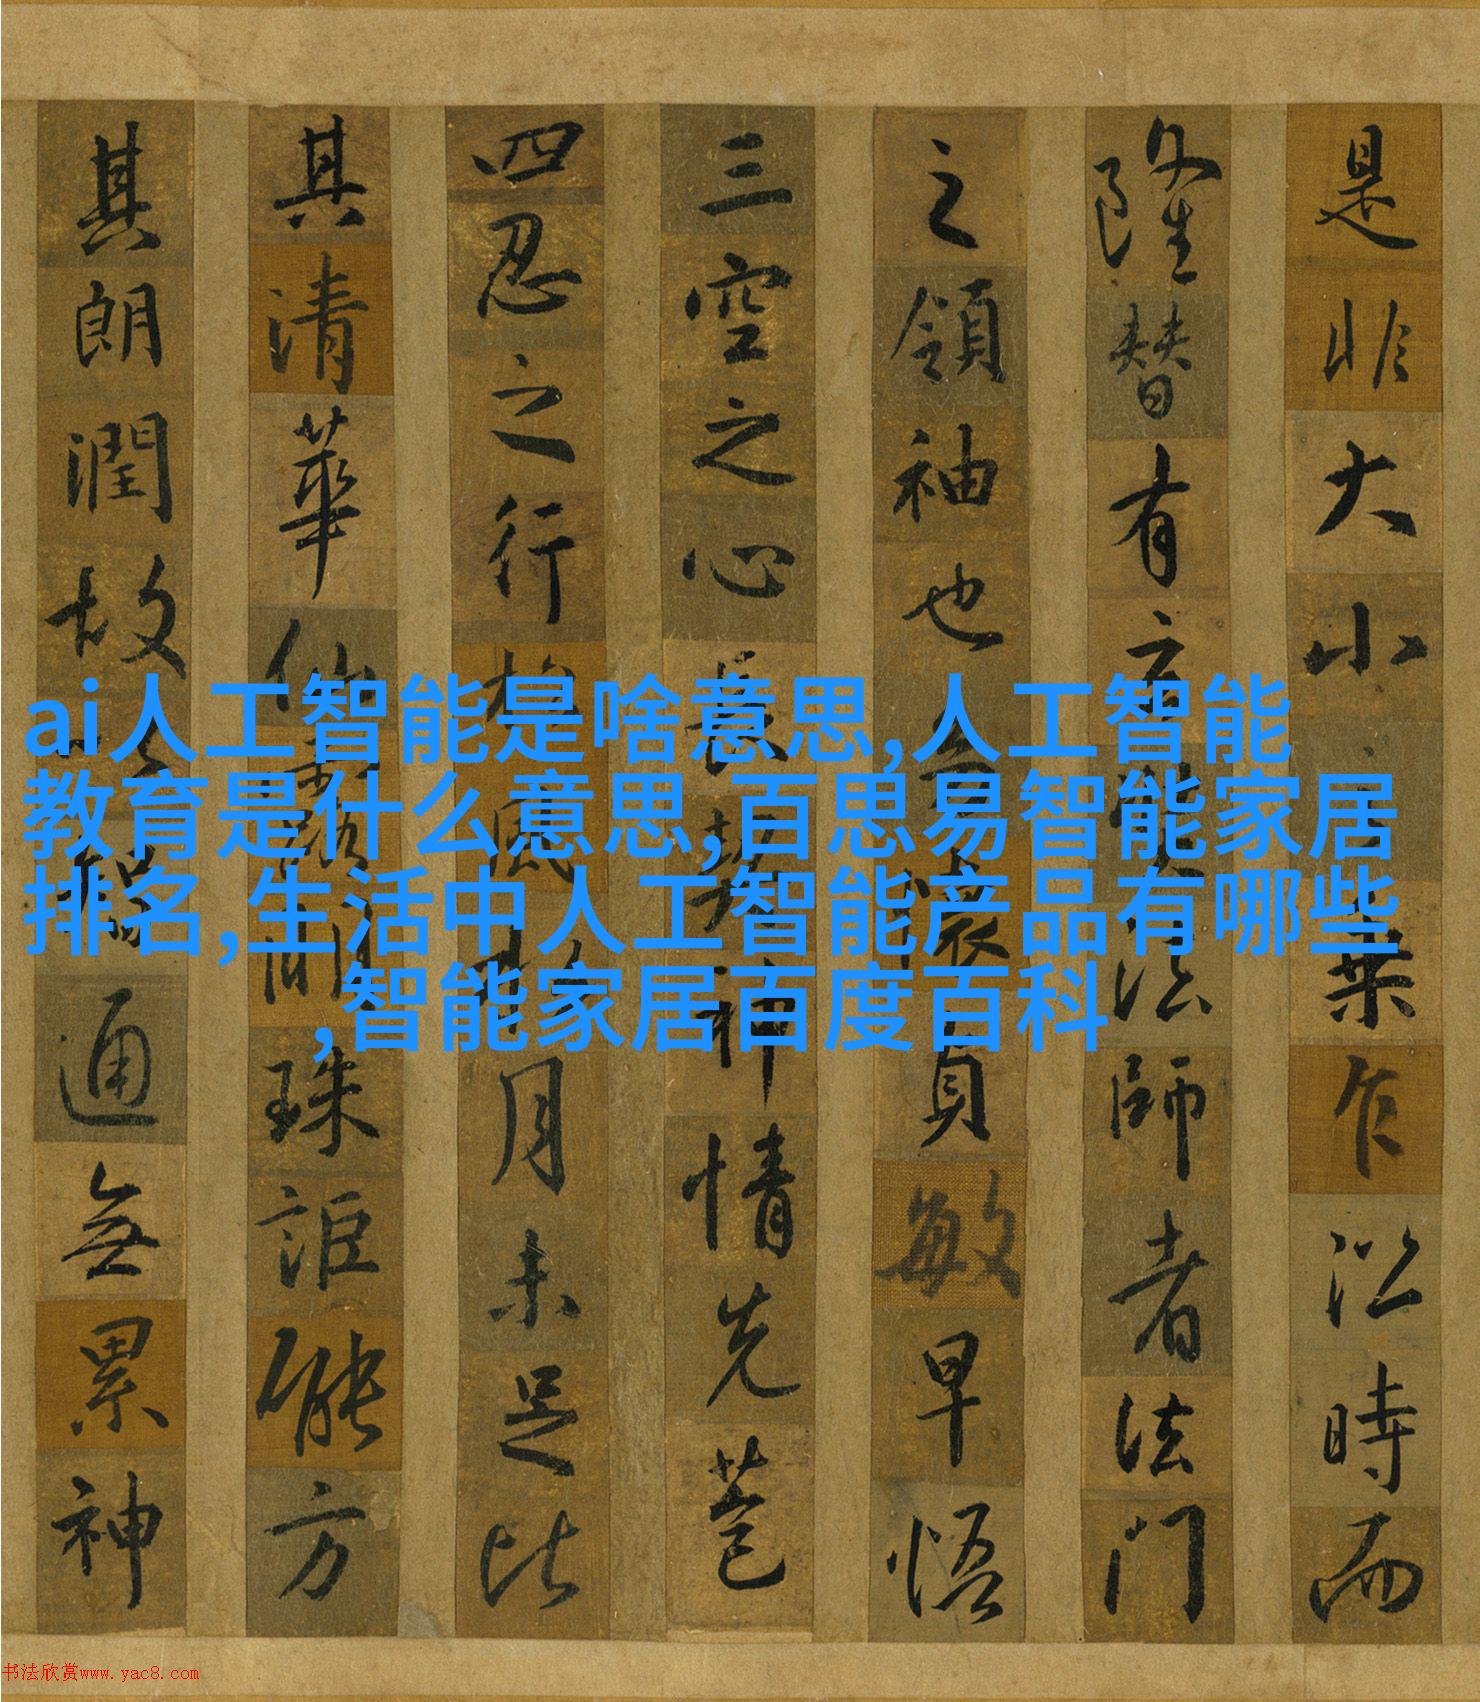 是非大小乘乍沿時而
隆替有玄奘法師者法門
之領袖也懷貞敏早悟
三空之心長契神情先苞
四忍之行松風月未足比
其清華仙露明珠詎能方
其朗潤故以智通無累神
ai人工智能是啥意思,人工智能
教育是什么意思,百思易智能家居
排名,生活中人工智能产品有哪些
,智能家居百度百科
书法欣赏www.yac8.com